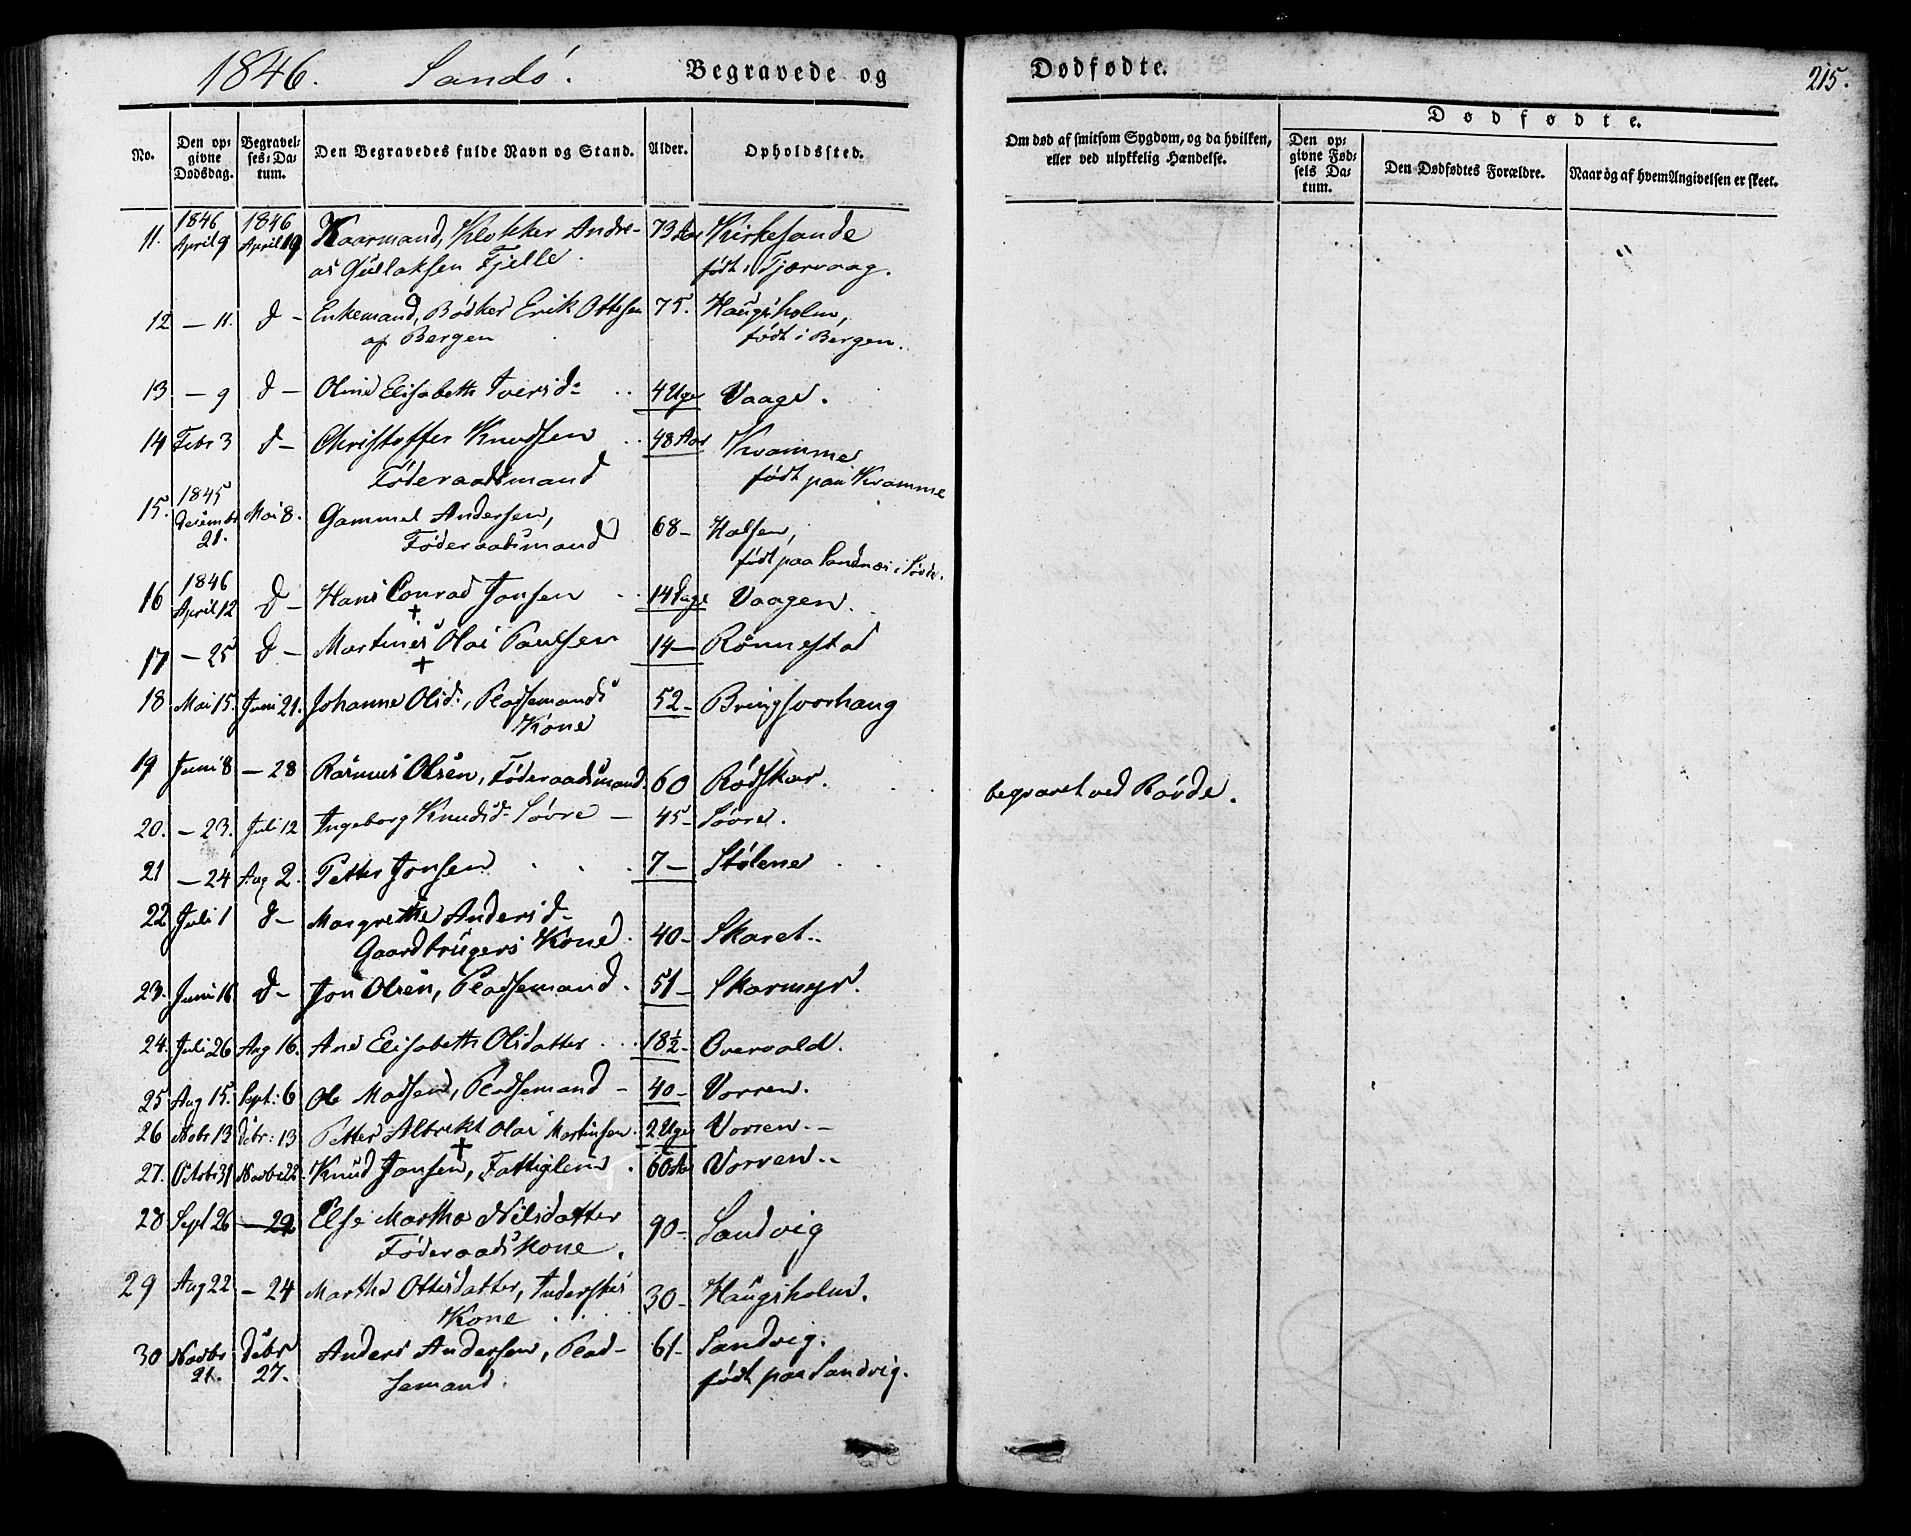 1846. Sandø. Begravede og Dødfødte. 215.
No. Den opgivne Dødsdag. Begravelses-Datum. Den Begravedes fulde Navn og Stand. Alder. Opholdssted. Om død af smitsom Sygdom, og da hvilken, eller ved ulykkelig Hændelse. Dødfødte.
Den opgivne Fødsels Datum. Den Dødfødtes Forældre. Naar og af hvem Angivelsen er skeet.
1846 1846
11. April 9 April 19 Kaarmand, Klokker Andre- 73 Aar Kirkesande
as Gullaksen Fjelle. født i Tjærvaag.
12 — 11. d — Enkemand, Bødker Erik Ottesen 75. Haugsholm,
af Bergen født i Bergen.
13 — 9 d — Oline Elisabeth Iversd: 4 Uger Vaage.
14 Febr 3 d — Christoffer Knudsen 48 Aar Kvamme
Føderaadsmand født paa Kvamme
1845
15. Decembr Mai 8. Gammel Andersen, 68 — Halsen,
21. Føderaadsmand født paa Sandnæs i Søvde.
1846
16 April 12 d — Hans Conrad Jonsen 14 Dage Vaagen.
17 — 25 d — Martinus Olai Paulsen 14 — Rønnestad
18 Mai 15. Juni 21. Johanne Olsd:, Pladsemands 52 — Bringsvorhaug
Kone
19 Juni 8 — 28 Rasmus Olsen, Føderaadsmand. 60 Rødskar. begravet ved Rovde.
20. — 23. Juli 12 Ingeborg Knudsd: Søvre — 45 — Søvre.
21 — 24 Aug 2. Petter Jonsen 7 — Stølene
22 Juli 1 d — Margrethe Andersd —
Gaardbrugers Kone. 40 — Skaret..
23. Juni 16 d — Jon Olsen, Pladsemand. 51 — Skarmyr.
24. Juli 26 Aug 16. Ane Elisabeth Olsdatter 18½ — Overvold.
25 Aug 15. Sept: 6 Ole Madsen, Pladsemand — 40 — Vorren.
26 Nobr 13 Debr: 13 Petter Albrekt Olai Martinsen. 2 Uger Vorren. —
27. Octobr 31 Novbr 22. Knud Jonsen, Fattiglem 60 Aar Vorren..
28 Sept 26 — 22 Else Martha Nilsdatter 90 — Sandvig
Føderaadskone.
29 Aug 22 — 24 Marthe Ottesdatter, Inderstes 30 — Haugsholm.
Kone
30 Novbr Debr Anders Andersen, Plad- 61 — Sandvig.
21. 27. semand. født paa Sandvig.